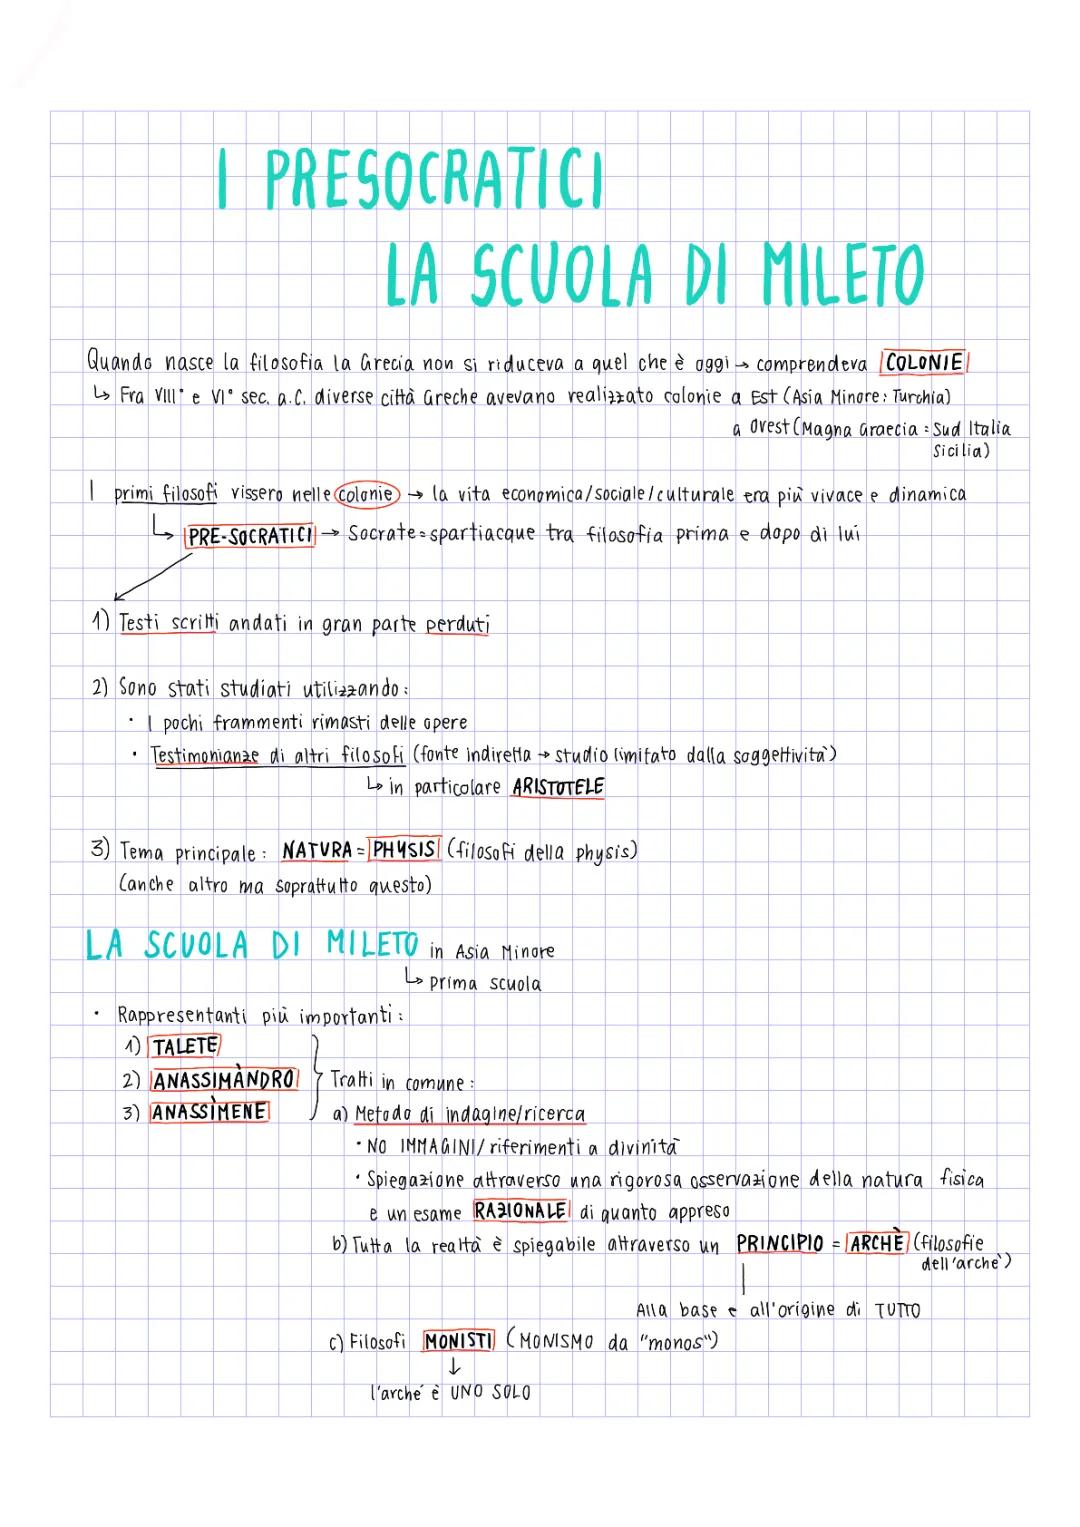 I PRESOCRATICI
LA SCUOLA DI MILETO
Quando nasce la filosofia la Grecia non si riduceva a quel che è oggi → comprendeva COLONIE
↳ Fra VIII° e VI° sec. a.C. diverse città Greche avevano realizzato colonie a Est (Asia Minore: Turchia)
a Ovest (Magna Graecia = Sud Italia
Sicilia)
I primi filosofi vissero nelle colonie → la vita economica/sociale/culturale era più vivace e dinamica
↳ PRE-SOCRATICI → Socrate = spartiacque tra filosofia prima e dopo di lui
1) Testi scritti andati in gran parte perduti
2) Sono stati studiati utilizzando:
• I pochi frammenti rimasti delle opere
• Testimonianze di altri filosofi (fonte indiretta → studio limitato dalla soggettività)
↳ in particolare ARISTOTELE
3) Tema principale: NATURA = PHYSIS (filosofi della physis)
(anche altro ma soprattutto questo)
LA SCUOLA DI MILETO in Asia Minore
↳ prima scuola
• Rappresentanti più importanti:
1) TALETE
2) ANASSIMÀNDRO Tratti in comune:
3) ANASSÌMENE a) Metodo di indagine/ricerca
• NO IMMAGINI/riferimenti a divinità
• Spiegazione attraverso una rigorosa osservazione della natura fisica
e un esame RAZIONALE di quanto appreso
b) Tutta la realtà è spiegabile attraverso un PRINCIPIO = ARCHÈ (filosofie
dell'archè)
Alla base e all'origine di TUTTO
c) Filosofi MONISTI (MONISMO da "monos")
↓
l'arché è UNO SOLO